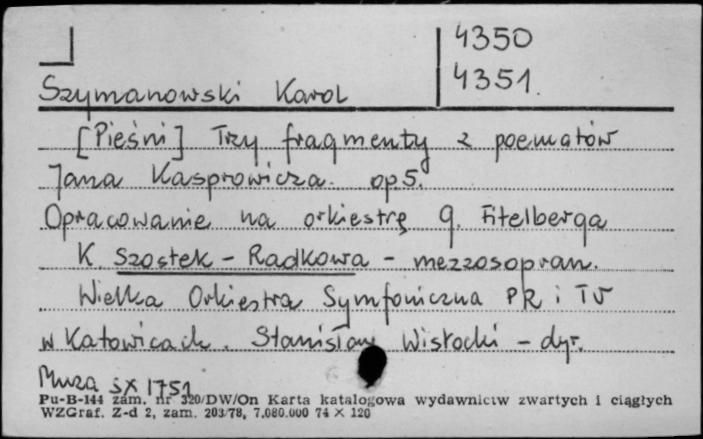 4350
Szymanowski Karol 4351.
[Pieśni] Trzy fragmenty z poematów
Jana Kasprowicza. op 5.
Opracowanie na orkiestrę G. Fitelberga
K. Szostek - Radkowa - mezzosopran.
Wielka Orkiestra Symfoniczna PR i TV
w Katowicach. Stanisław Wisłocki - dyr.
Muza SX 1751
Pu-B-144 zam. nr 320/DW/On Karta katalogowa wydawnictw zwartych i ciągłych
WZGraf. Z-d 2, zam. 203/78, 7.080.000 74 X 120